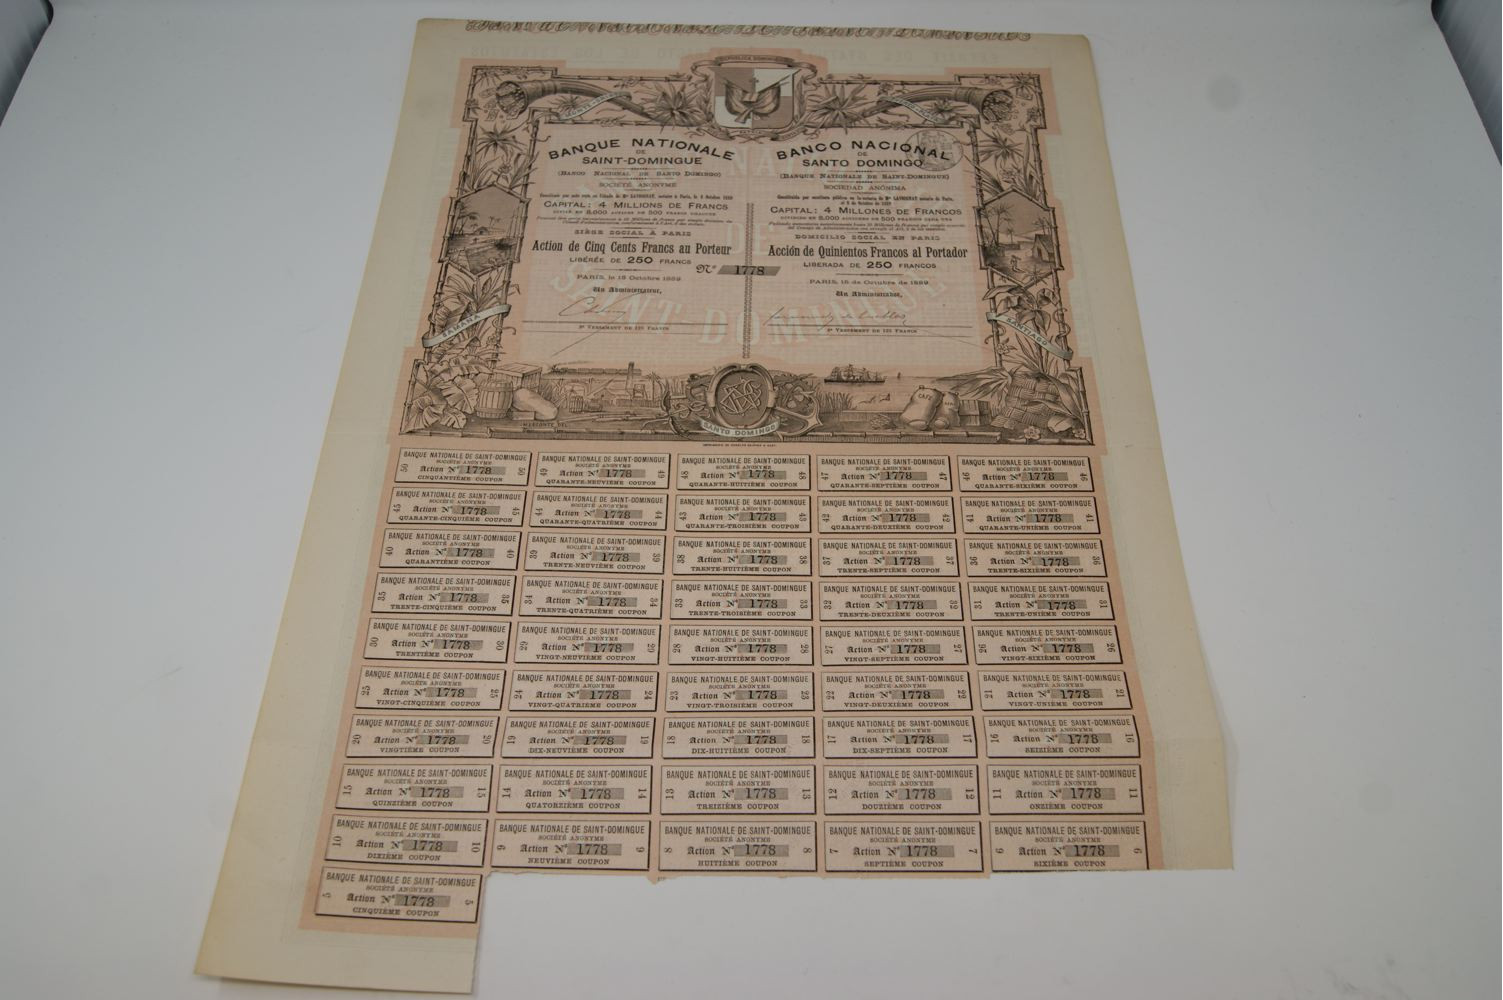 REPUBLICA DOMINICANA
BANQUE NATIONALE
DE
SAINT-DOMINGUE
(BANCO NACIONAL DE SANTO DOMINGO)
SOCIÉTÉ ANONYME
CAPITAL: 4 MILLIONS DE FRANCS
DIVISÉ EN 8,000 ACTIONS DE 500 FRANCS CHACUNE
SIÈGE SOCIAL À PARIS
Action de Cinq Cents Francs au Porteur
LIBÉRÉE DE 250 FRANCS
PARIS, le 15 Octobre 1889
Un Administrateur,
2e VERSEMENT DE 125 FRANCS
BANCO NACIONAL
DE
SANTO DOMINGO
(BANQUE NATIONALE DE SAINT-DOMINGUE)
SOCIEDAD ANÓNIMA
CAPITAL: 4 MILLONES DE FRANCOS
DIVIDIDO EN 8,000 ACCIONES DE 500 FRANCOS CADA UNA
DOMICILIO SOCIAL EN PARIS
Acción de Quinientos Francos al Portador
LIBERADA DE 250 FRANCOS
PARIS, 15 de Octubre de 1889
Un Administrador,
2e VERSEMENT DE 125 FRANCS
No 1778
SAMANA
SANTIAGO
CAFÉ
SANTO DOMINGO
BANQUE NATIONALE DE SAINT-DOMINGUE
SOCIÉTÉ ANONYME
50 Action No 1778 50
CINQUANTIÈME COUPON
BANQUE NATIONALE DE SAINT-DOMINGUE
SOCIÉTÉ ANONYME
49 Action No 1778 49
QUARANTE-NEUVIÈME COUPON
BANQUE NATIONALE DE SAINT-DOMINGUE
SOCIÉTÉ ANONYME
48 Action No 1778 48
QUARANTE-HUITIÈME COUPON
BANQUE NATIONALE DE SAINT-DOMINGUE
SOCIÉTÉ ANONYME
47 Action No 1778 47
QUARANTE-SEPTIÈME COUPON
BANQUE NATIONALE DE SAINT-DOMINGUE
SOCIÉTÉ ANONYME
46 Action No 1778 46
QUARANTE-SIXIÈME COUPON
BANQUE NATIONALE DE SAINT-DOMINGUE
SOCIÉTÉ ANONYME
45 Action No 1778 45
QUARANTE-CINQUIÈME COUPON
BANQUE NATIONALE DE SAINT-DOMINGUE
SOCIÉTÉ ANONYME
44 Action No 1778 44
QUARANTE-QUATRIÈME COUPON
BANQUE NATIONALE DE SAINT-DOMINGUE
SOCIÉTÉ ANONYME
43 Action No 1778 43
QUARANTE-TROISIÈME COUPON
BANQUE NATIONALE DE SAINT-DOMINGUE
SOCIÉTÉ ANONYME
42 Action No 1778 42
QUARANTE-DEUXIÈME COUPON
BANQUE NATIONALE DE SAINT-DOMINGUE
SOCIÉTÉ ANONYME
41 Action No 1778 41
QUARANTE-UNIÈME COUPON
BANQUE NATIONALE DE SAINT-DOMINGUE
SOCIÉTÉ ANONYME
40 Action No 1778 40
QUARANTIÈME COUPON
BANQUE NATIONALE DE SAINT-DOMINGUE
SOCIÉTÉ ANONYME
39 Action No 1778 39
TRENTE-NEUVIÈME COUPON
BANQUE NATIONALE DE SAINT-DOMINGUE
SOCIÉTÉ ANONYME
38 Action No 1778 38
TRENTE-HUITIÈME COUPON
BANQUE NATIONALE DE SAINT-DOMINGUE
SOCIÉTÉ ANONYME
37 Action No 1778 37
TRENTE-SEPTIÈME COUPON
BANQUE NATIONALE DE SAINT-DOMINGUE
SOCIÉTÉ ANONYME
36 Action No 1778 36
TRENTE-SIXIÈME COUPON
BANQUE NATIONALE DE SAINT-DOMINGUE
SOCIÉTÉ ANONYME
35 Action No 1778 35
TRENTE-CINQUIÈME COUPON
BANQUE NATIONALE DE SAINT-DOMINGUE
SOCIÉTÉ ANONYME
34 Action No 1778 34
TRENTE-QUATRIÈME COUPON
BANQUE NATIONALE DE SAINT-DOMINGUE
SOCIÉTÉ ANONYME
33 Action No 1778 33
TRENTE-TROISIÈME COUPON
BANQUE NATIONALE DE SAINT-DOMINGUE
SOCIÉTÉ ANONYME
32 Action No 1778 32
TRENTE-DEUXIÈME COUPON
BANQUE NATIONALE DE SAINT-DOMINGUE
SOCIÉTÉ ANONYME
31 Action No 1778 31
TRENTE-UNIÈME COUPON
BANQUE NATIONALE DE SAINT-DOMINGUE
SOCIÉTÉ ANONYME
30 Action No 1778 30
TRENTIÈME COUPON
BANQUE NATIONALE DE SAINT-DOMINGUE
SOCIÉTÉ ANONYME
29 Action No 1778 29
VINGT-NEUVIÈME COUPON
BANQUE NATIONALE DE SAINT-DOMINGUE
SOCIÉTÉ ANONYME
28 Action No 1778 28
VINGT-HUITIÈME COUPON
BANQUE NATIONALE DE SAINT-DOMINGUE
SOCIÉTÉ ANONYME
27 Action No 1778 27
VINGT-SEPTIÈME COUPON
BANQUE NATIONALE DE SAINT-DOMINGUE
SOCIÉTÉ ANONYME
26 Action No 1778 26
VINGT-SIXIÈME COUPON
BANQUE NATIONALE DE SAINT-DOMINGUE
SOCIÉTÉ ANONYME
25 Action No 1778 25
VINGT-CINQUIÈME COUPON
BANQUE NATIONALE DE SAINT-DOMINGUE
SOCIÉTÉ ANONYME
24 Action No 1778 24
VINGT-QUATRIÈME COUPON
BANQUE NATIONALE DE SAINT-DOMINGUE
SOCIÉTÉ ANONYME
23 Action No 1778 23
VINGT-TROISIÈME COUPON
BANQUE NATIONALE DE SAINT-DOMINGUE
SOCIÉTÉ ANONYME
22 Action No 1778 22
VINGT-DEUXIÈME COUPON
BANQUE NATIONALE DE SAINT-DOMINGUE
SOCIÉTÉ ANONYME
21 Action No 1778 21
VINGT-UNIÈME COUPON
BANQUE NATIONALE DE SAINT-DOMINGUE
SOCIÉTÉ ANONYME
20 Action No 1778 20
VINGTIÈME COUPON
BANQUE NATIONALE DE SAINT-DOMINGUE
SOCIÉTÉ ANONYME
19 Action No 1778 19
DIX-NEUVIÈME COUPON
BANQUE NATIONALE DE SAINT-DOMINGUE
SOCIÉTÉ ANONYME
18 Action No 1778 18
DIX-HUITIÈME COUPON
BANQUE NATIONALE DE SAINT-DOMINGUE
SOCIÉTÉ ANONYME
17 Action No 1778 17
DIX-SEPTIÈME COUPON
BANQUE NATIONALE DE SAINT-DOMINGUE
SOCIÉTÉ ANONYME
16 Action No 1778 16
SEIZIÈME COUPON
BANQUE NATIONALE DE SAINT-DOMINGUE
SOCIÉTÉ ANONYME
15 Action No 1778 15
QUINZIÈME COUPON
BANQUE NATIONALE DE SAINT-DOMINGUE
SOCIÉTÉ ANONYME
14 Action No 1778 14
QUATORZIÈME COUPON
BANQUE NATIONALE DE SAINT-DOMINGUE
SOCIÉTÉ ANONYME
13 Action No 1778 13
TREIZIÈME COUPON
BANQUE NATIONALE DE SAINT-DOMINGUE
SOCIÉTÉ ANONYME
12 Action No 1778 12
DOUZIÈME COUPON
BANQUE NATIONALE DE SAINT-DOMINGUE
SOCIÉTÉ ANONYME
11 Action No 1778 11
ONZIÈME COUPON
BANQUE NATIONALE DE SAINT-DOMINGUE
SOCIÉTÉ ANONYME
10 Action No 1778 10
DIXIÈME COUPON
BANQUE NATIONALE DE SAINT-DOMINGUE
SOCIÉTÉ ANONYME
9 Action No 1778 9
NEUVIÈME COUPON
BANQUE NATIONALE DE SAINT-DOMINGUE
SOCIÉTÉ ANONYME
8 Action No 1778 8
HUITIÈME COUPON
BANQUE NATIONALE DE SAINT-DOMINGUE
SOCIÉTÉ ANONYME
7 Action No 1778 7
SEPTIÈME COUPON
BANQUE NATIONALE DE SAINT-DOMINGUE
SOCIÉTÉ ANONYME
6 Action No 1778 6
SIXIÈME COUPON
BANQUE NATIONALE DE SAINT-DOMINGUE
SOCIÉTÉ ANONYME
5 Action No 1778 5
CINQUIÈME COUPON